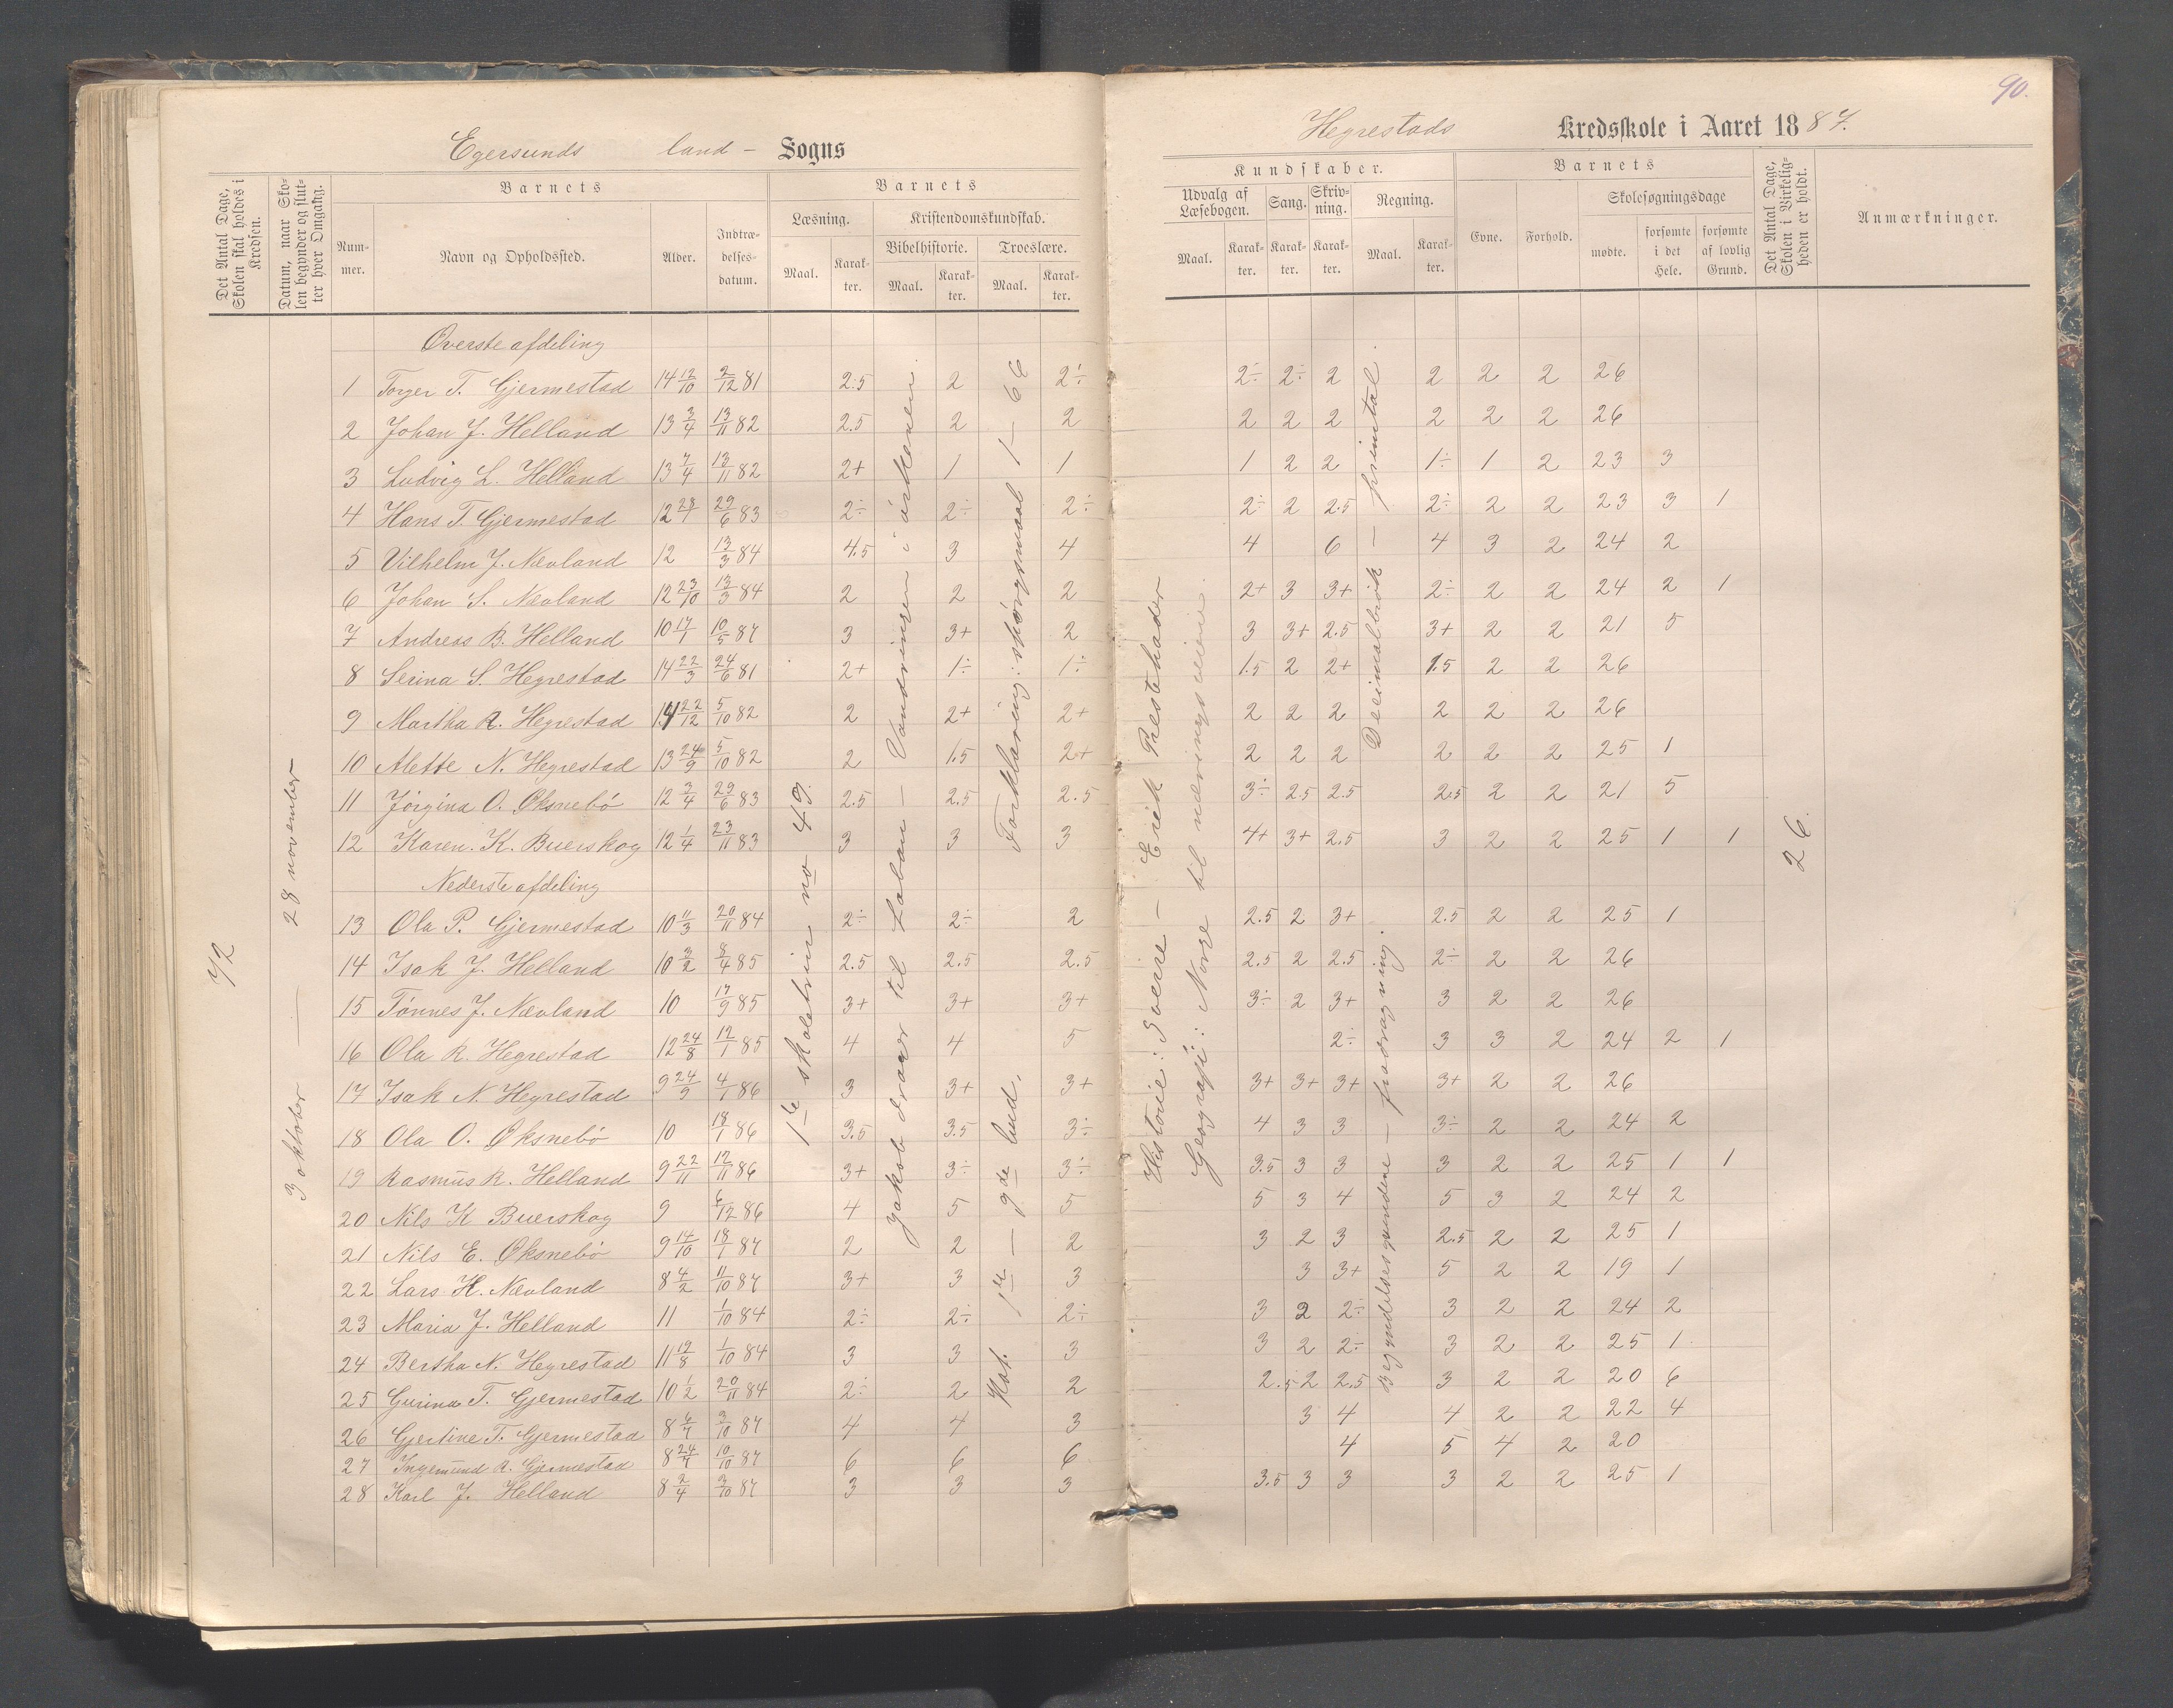 90.
Egersunds land - Sogns
Hegrestads Kredsskole i Aaret 1887.
Det Antal Dage, Skolen skal holdes i Kredsen.
Datum, naar Skolen begynder og slutter hver Omgang.
Nummer.
Barnets
Navn og Opholdssted.
Alder.
Indtrædelsesdatum.
Barnets
Læsning.
Kristendomskundskab.
Bibelhistorie.
Troeslære.
Maal. Karakter. Maal. Karakter. Maal. Karakter.
Kundskaber.
Udvalg af Læsebogen. Sang. Skrivning. Regning.
Maal. Karakter. Karakter. Karakter. Maal. Karakter.
Barnets
Evne. Forhold.
Skolesøgningsdage
mødte. forsømte i det Hele. forsømte af lovlig Grund.
Det Antal Dage, Skolen i Virkeligheden er holdt.
Anmærkninger.
72
3 oktober — 28 november
1te skoletrin no 49.
Jakob drager til Laban — Vandringen i ørkenen.
Kat. 1ste — 9de bud. Forklaring: spørgsmaal 1 — 66
Historie: Sverre — Erik Prestehader
Geografi: Norge til næringsveiene.
Begyndelsesgrundene — fradragning. Decimalbrøk — primtal.
26.
Øverste afdeling
1 Torger T. Gjermestad 14 12/10 2/12 81 2.5 2 2÷ 2÷ 2÷ 2 2 2 2 26
2 Johan J. Helland 13 3/4 13/11 82 2.5 2 2 2 2 2 2 2 2 26
3 Ludvig L. Helland 13 7/4 13/11 82 2+ 1 1 1 2 2 1÷ 1 2 23 3
4 Hans T. Gjermestad 12 23/7 29/6 83 2÷ 2÷ 2÷ 2÷ 2 2.5 2÷ 2 2 23 3 1
5 Vilhelm J. Nævland 12 13/3 84 4.5 3 4 4 6 4 3 2 24 2
6 Johan S. Nævland 12 23/10 13/3 84 2 2 2 2+ 3 3+ 2÷ 2 2 24 2 1
7 Andreas B. Helland 10 17/1 10/5 87 3 3+ 2 3 3+ 2.5 3+ 2 2 21 5
8 Serina S. Hegrestad 14 22/3 24/6 81 2+ 1÷ 1÷ 1.5 2 2+ 1.5 2 2 26
9 Martha R. Hegrestad 14 22/12 5/10 82 2 2+ 2+ 2 2 2 2 2 2 26
10 Alette N. Hegrestad 13 24/9 5/10 82 2 1.5 2+ 2 2 2 2 2 2 25 1
11 Jørgina O. Øksnebø 12 3/4 29/6 83 2.5 2.5 2.5 3÷ 2.5 2.5 2.5 2 2 21 5
12 Karen. K. Buerskog 12 1/4 23/11 83 3 3 3 4+ 3+ 2.5 3 2 2 25 1 1
Nederste afdeling
13 Ola P. Gjermestad 10 11/3 20/11 84 2÷ 2÷ 2 2.5 2 3+ 2.5 2 2 25 1
14 Isak J. Helland 10 3/2 8/4 85 2.5 2.5 2.5 2.5 2 2.5 2÷ 2 2 26
15 Tønnes J. Nævland 10 17/9 85 3+ 3+ 3+ 3÷ 2 3+ 3 2 2 26
16 Ola R. Hegrestad 12 24/8 12/1 85 4 4 5 2÷ 3 3 2 24 2 1
17 Isak N. Hegrestad 9 24/9 4/1 86 3 3+ 3+ 3+ 3+ 3+ 3+ 2 2 26
18 Ola O. Øksnebø 10 18/1 86 3.5 3.5 3÷ 4 3 3 3÷ 2 2 24 2
19 Rasmus R. Helland 9 22/11 12/11 86 3+ 3÷ 3÷ 3.5 3 3 3 2 2 25 1 1
20 Nils K Buerskog 9 6/12 86 4 5 5 5 3 4 5 3 2 24 2
21 Nils E. Øksnebø 9 14/10 18/1 87 2 2 2 3 2 3 2.5 2 2 25 1
22 Lars H. Nævland 8 4/2 11/10 87 3+ 3 3 3 3+ 5 2 2 19 1
23 Maria J. Helland 11 1/10 84 2÷ 2÷ 2÷ 3 2 2÷ 3 2 2 24 2
24 Bertha N. Hegrestad 11 19/8 1/10 84 3 3 3 3 2 2÷ 3 2 2 25 1
25 Gurina T. Gjermestad 10 1/2 20/11 84 2÷ 2 2 2.5 2 2.5 3 2 2 20 6
26 Gjertine T. Gjermestad 8 6/7 3/10 87 4 4 3 3 4 4 2 2 22 4
27 Ingemund R. Gjermestad 8 24/7 10/10 87 6 6 6 4 5 4 2 20
28 Karl J. Helland 8 2/4 3/10 87 3 3 3 3.5 3 3 3 2 2 25 1